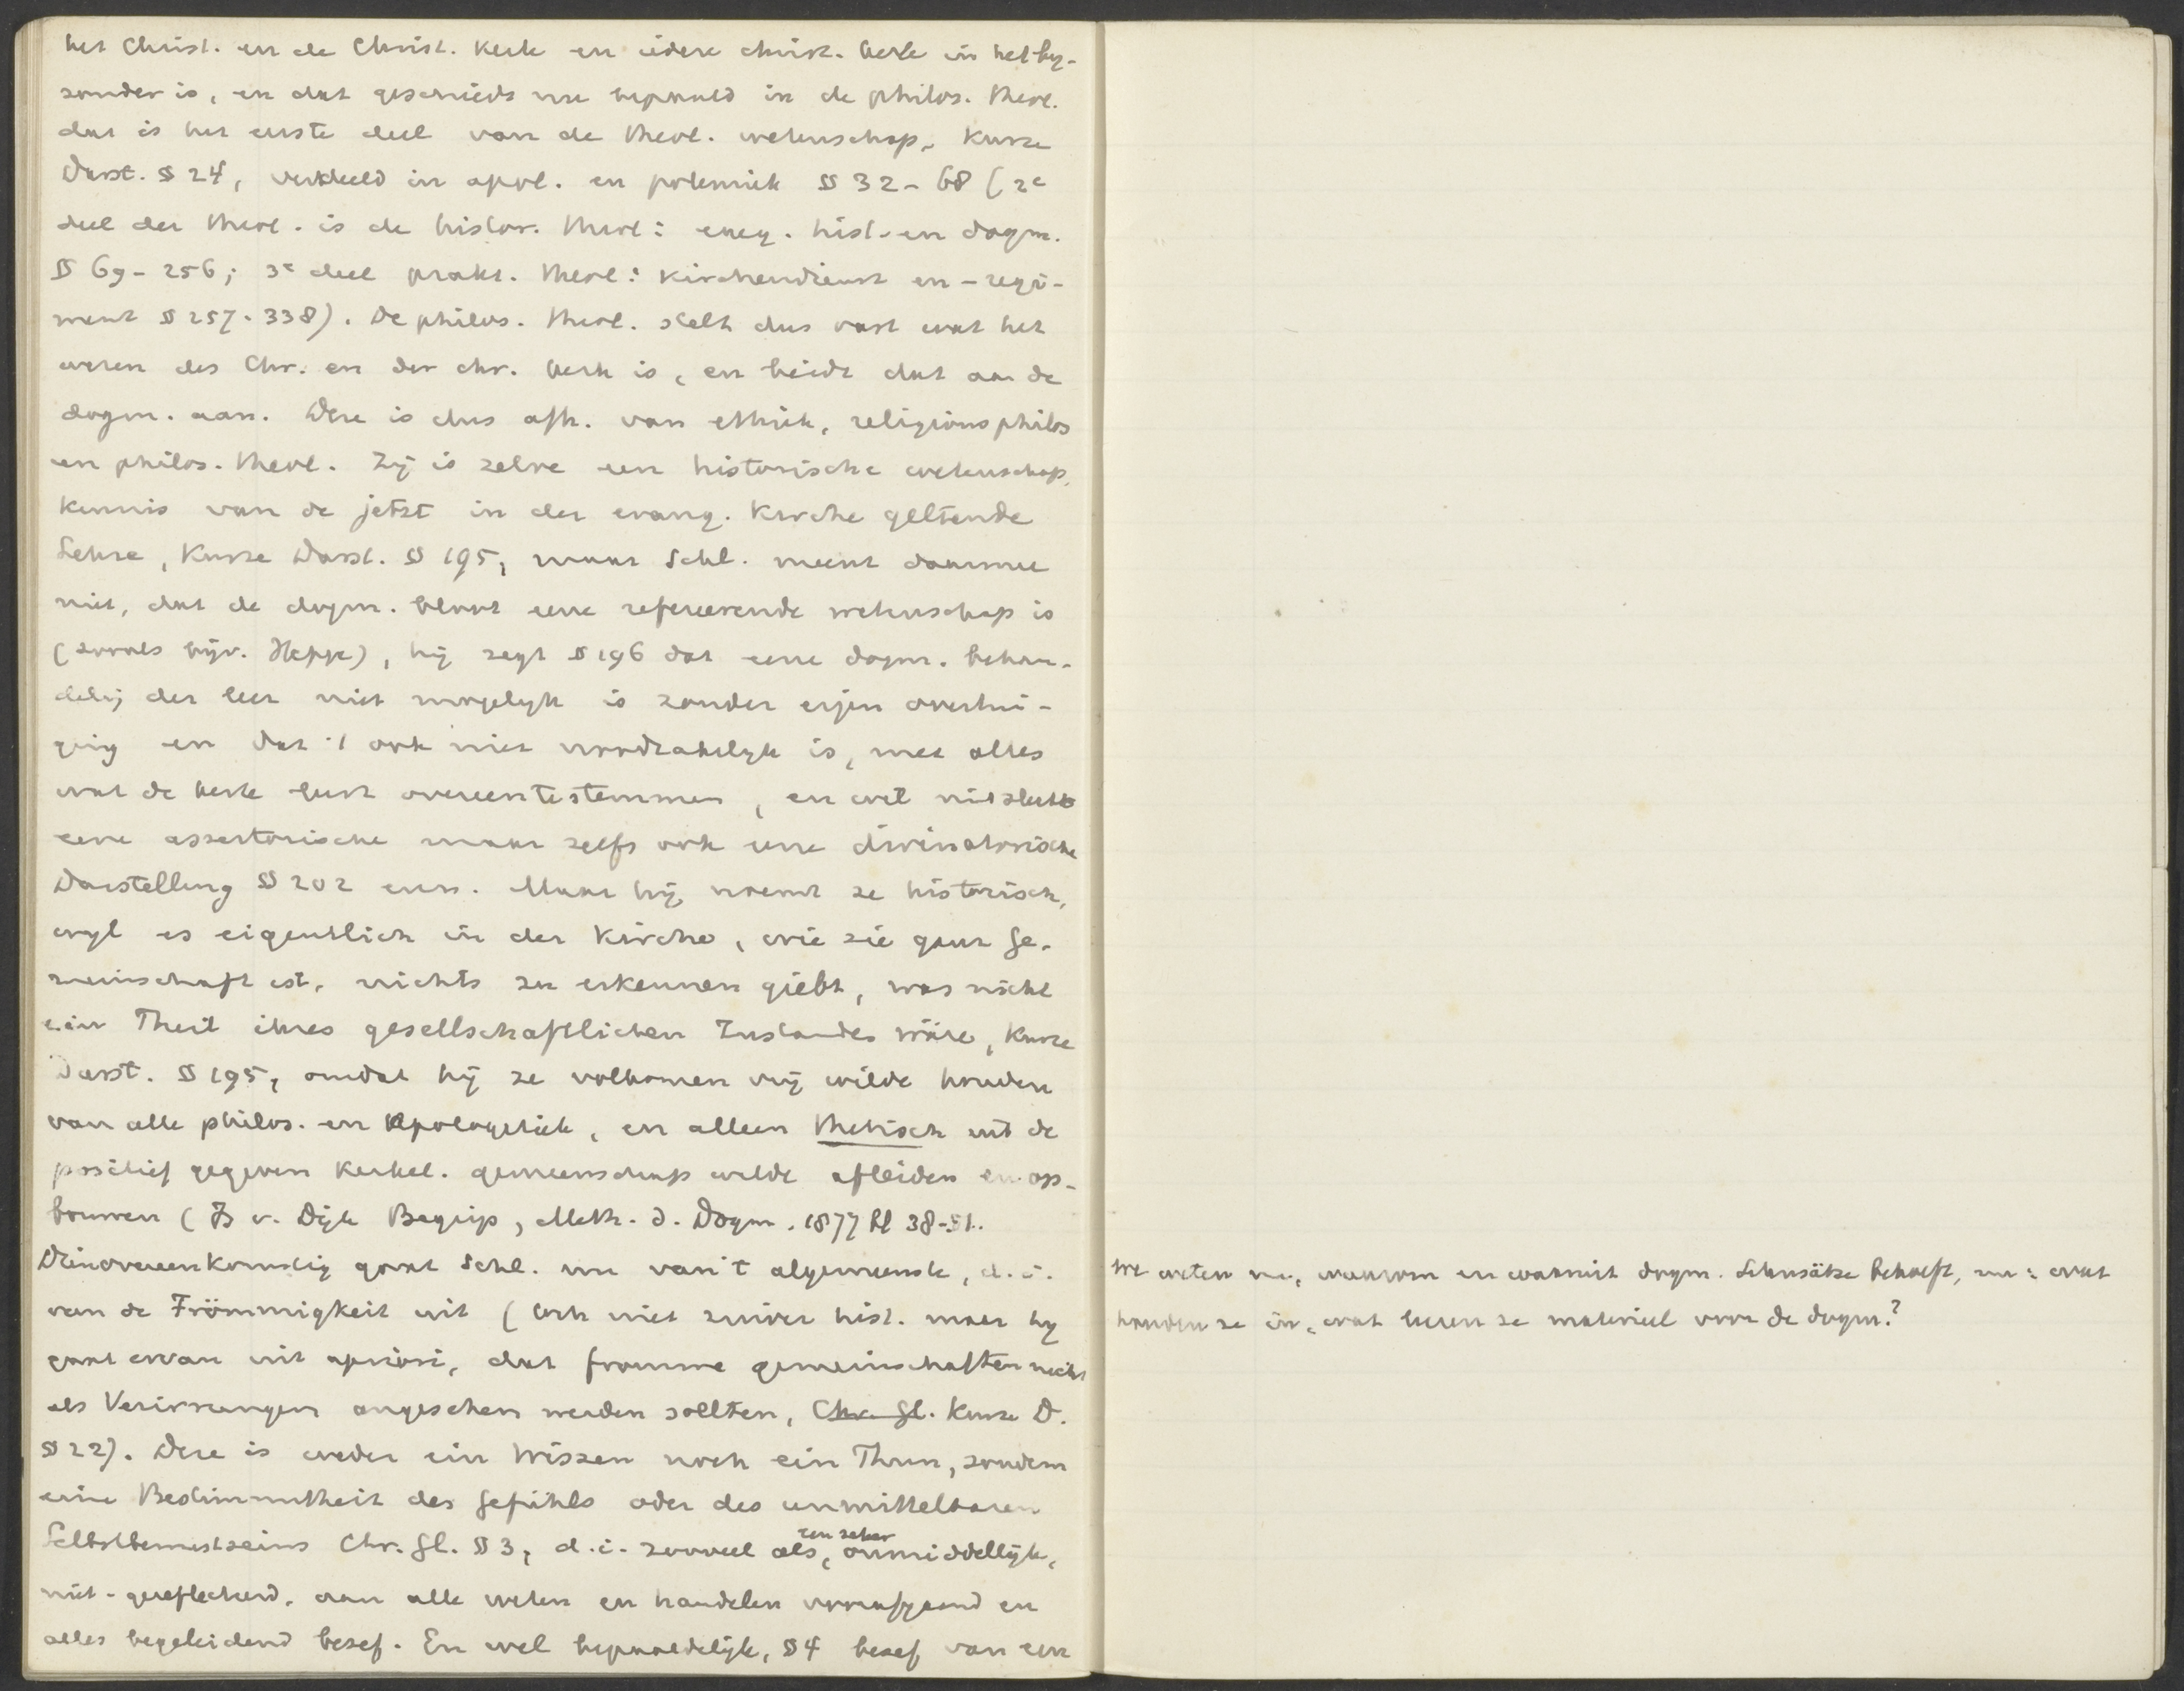 het Christ. en de Christ. Kerk en iedere christ. kerk in het by-
zonder is, en dat geschiedt nu bepaald in de philos. theol.
dat is het eerste deel van de theol. wetenschap, Kurze
Darst. § 24, verdeeld in apol. en polemiek §§ 32-68 (2e
deel der theol. is de histor. theol: exeg. hist. en dogm.
§§ 69-256; 3e deel prakt. theol: Kirchendienst en -regi-
ment § 257-338). De philos. theol. stelt dus vast wat het
wezen des Chr. en der chr. kerk is, en biedt dat aan de
dogm. aan. Deze is dus afh. van ethiek, religionsphilos
en philos. theol. Zij is zelve een historische wetenschap,
kennis van de jetzt in der evang. Kirche geltende
Lehre, Kurze Darst. § 195, maar Schl. meent daarmee
niet, dat de dogm. bloot eene refereerende wetenschap is
(zooals bijv. Heppe), hij zegt § 196 dat eene dogm. behan-
deling der leer niet mogelyk is zonder eigen overtui-
ging en dat 't ook niet noodzakelyk is, met alles
wat de kerk leert overeentestemmen, en wil niet slechts
eene assertorische maar zelfs ook eene divinatorische
Darstellung § 202 enz. Maar hij noemt ze historisch,
wyl es eigentlich in der Kirche, wie sie ganz Ge-
meinschaft ist, nichts zu erkennen giebt, was nicht
ein Theil ihres gesellschaftlichen Zustandes wäre, Kurze
Darst. § 195, omdat hij ze volkomen vrij wilde houden
van alle philos. en Apologetiek, en alleen thetisch uit de
positief gegeven kerkel. gemeenschap wilde afleiden en op-
bouwen (Is v. Dijk Begrip, Meth. d. Dogm. 1877 bl 38-51.
Dienovereenkomstig gaat Schl. nu van 't algemeenste, d.i.
van de Frömmigkeit uit (ook niet zuiver hist. maar hy
gaat ervan uit apriori, dat fromme Gemeinschaften nicht
als Verirrungen angesehen werden sollten, Chr. Gl. Kurze D.
§ 22). Deze is weder ein Wissen noch ein Thun, sondern
eine Bestimmtheit des Gefühls oder des unmittelbaren
Selbstbewustseins Chr. Gl. § 3, d.i. zooveel als, een zeker onmiddellijk,
niet-gereflecteerd, aan alle weten en handelen voorafgaand en
alles begeleidend besef. En wel bepaaldelijk, § 4 besef van een
We weten nu, waarom en waaruit dogm. Lehnsätze behoeft, nu: wat
houden ze in, wat leveren ze materieel voor de dogm.?